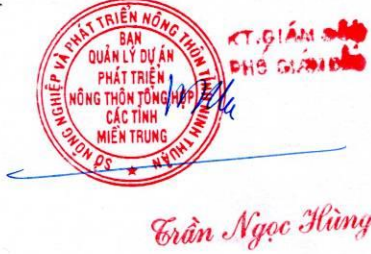 SỞ NÔNG NGHIỆP VÀ PHÁT TRIỂN NÔNG THÔN TỈNH NINH THUẬN
BAN
QUẢN LÝ DỰ ÁN
PHÁT TRIỂN
NÔNG THÔN TỔNG HỢP
CÁC TỈNH
MIỀN TRUNG
KT.GIÁM ĐỐC
PHÓ GIÁM ĐỐC
Trần Ngọc Hùng